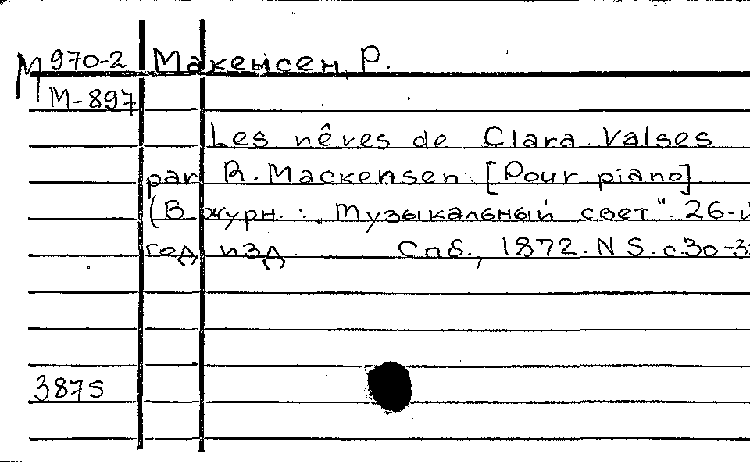 М 970-2 Макенсен, Р.
М-897
Les nêves de Clara Valses
par R. Mackensen. [Pour piano]
(В журн.: „Музыкальный свет". 26-й
год изд Спб., 1872. N 5. с.30-3
3875